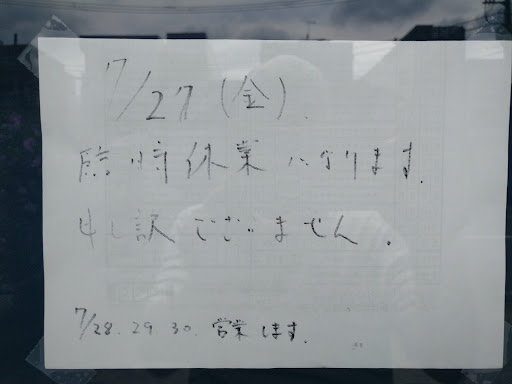 7/27(金).
臨時休業になります.
申し訳ございません.
7/28.29.30.営業します.